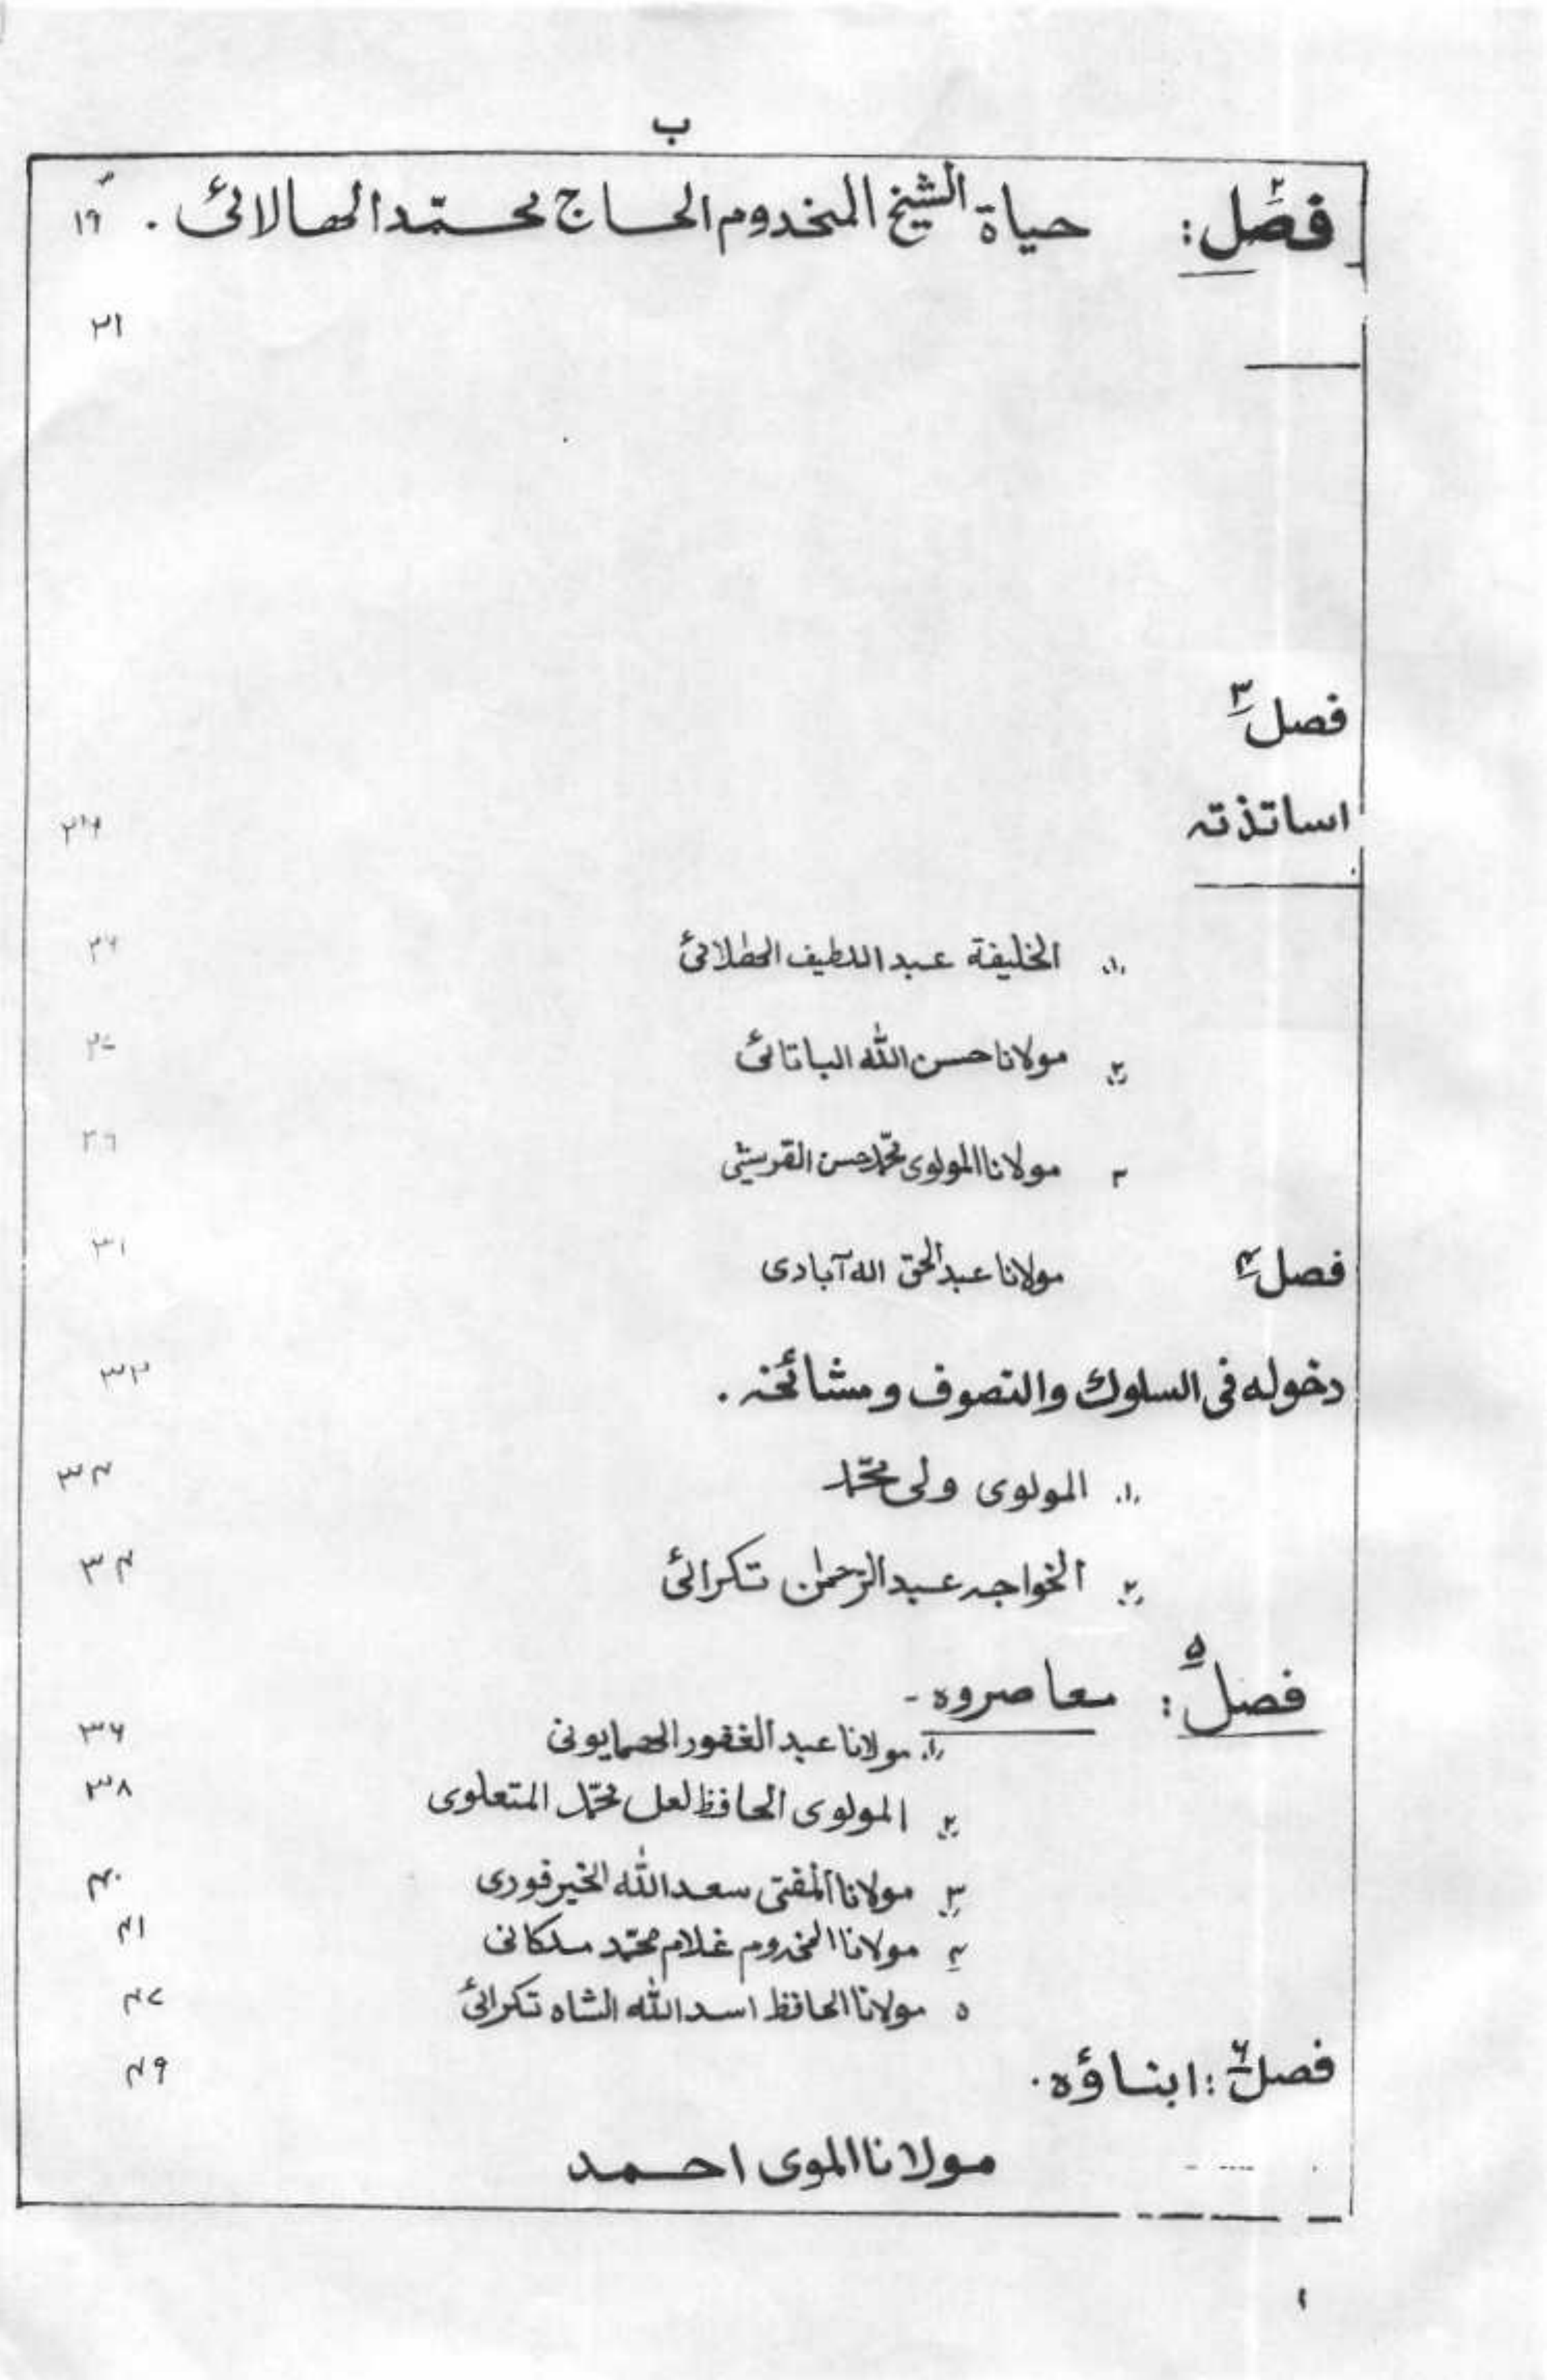 ب
فصل ٢: حياة الشيخ المخدوم الحاج محمّد الهالائى . ١٦
٢١
فصل ٣
اساتذته ٢٦
١. الخليفة عبد اللطيف الهالائى ٢٦
٢ مولانا حسن الله الباتائى
٣ مولانا المولوى محمّد حسن القريشى ٢٦
فصل ٤ مولانا عبد الحق اله آبادى ٣١
دخوله فى السلوك والتصوف ومشائخه . ٣٣
١. المولوى ولى محمّد ٣٤
٢ الخواجه عبد الرحمٰن تكرائى ٣٤
فصل ٥: معاصروه -
١. مولانا عبد الغفور الهمايونى ٣٦
٢ المولوى الحافظ لعل محمّد المتعلوى ٣٨
٣ مولانا المفتى سعد الله الخيرفورى ٤٠
٤ مولانا المخدوم غلام محمّد ملكانى ٤١
٥ مولانا الحافظ اسد الله الشاه تكرائى ٤٧
فصل ٦: ابناؤه . ٤٩
مولانا الموى احمد